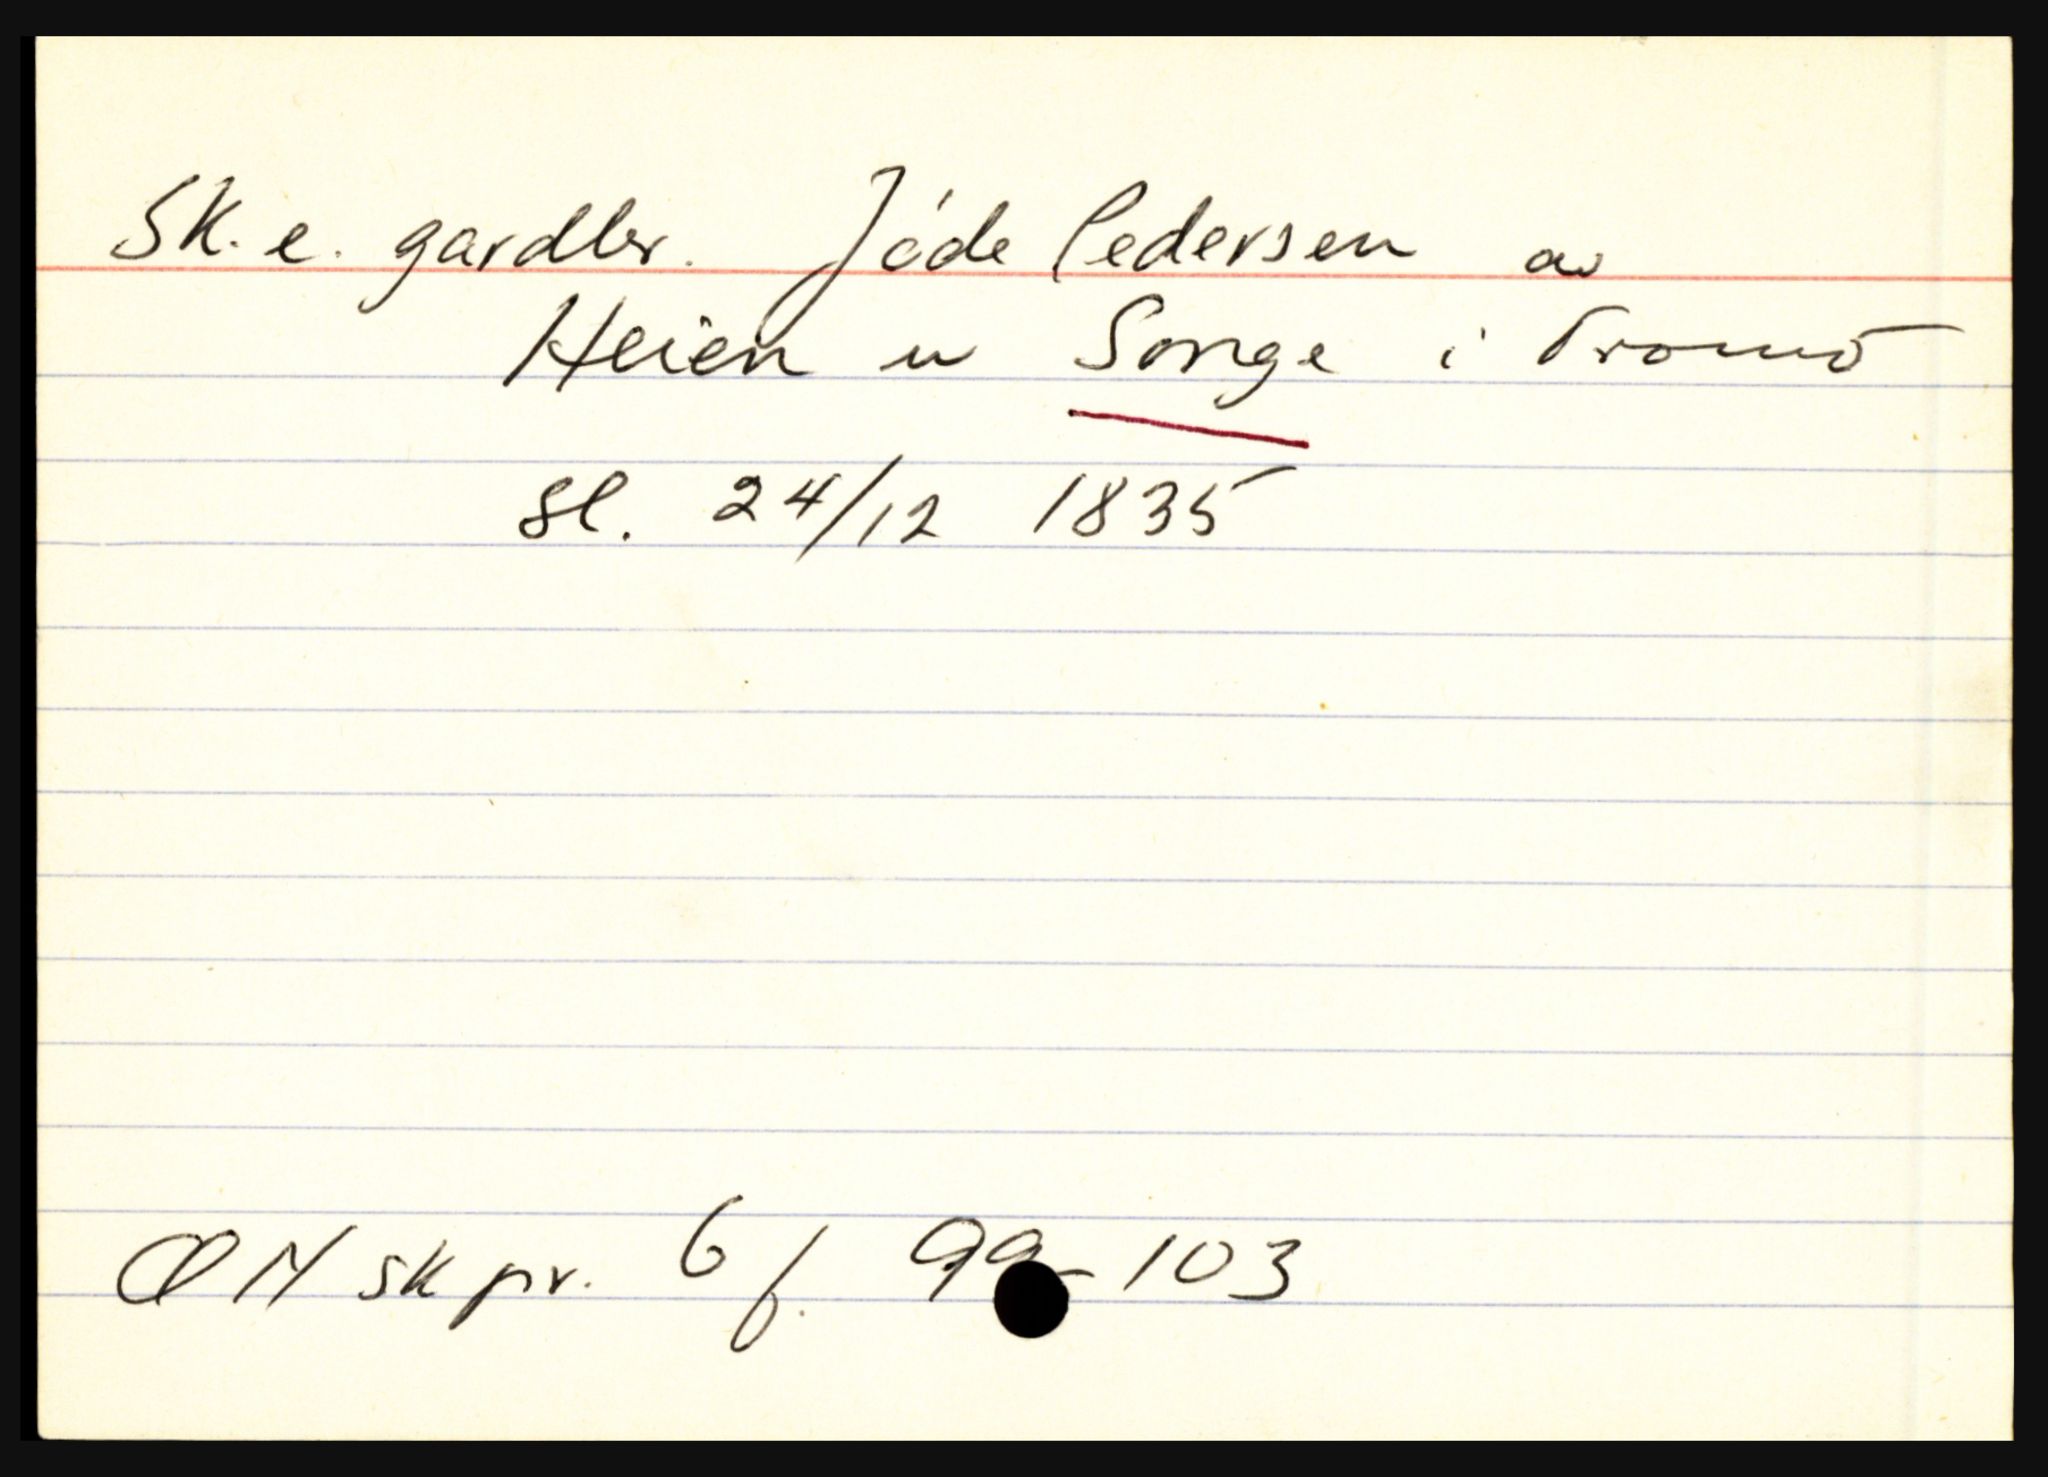 Sk. e. gardbr. Jóde Pedersen av
Heien u Songe i Tromö
sl. 24/12 1835
ØN skpr. 6 f. 99-103